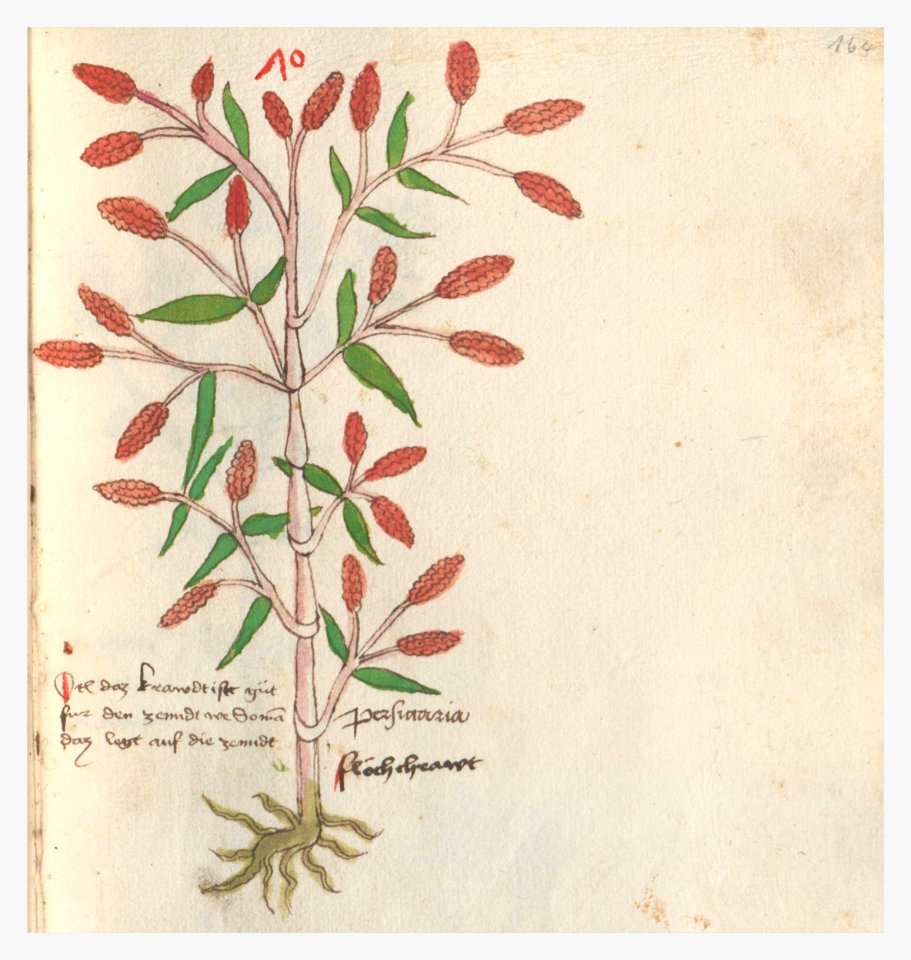 10
164
Itl daz krawdt ist gůt
fur den zenndt we So ma
daz legt auf die zenndt
persicaria
flöchcheawt